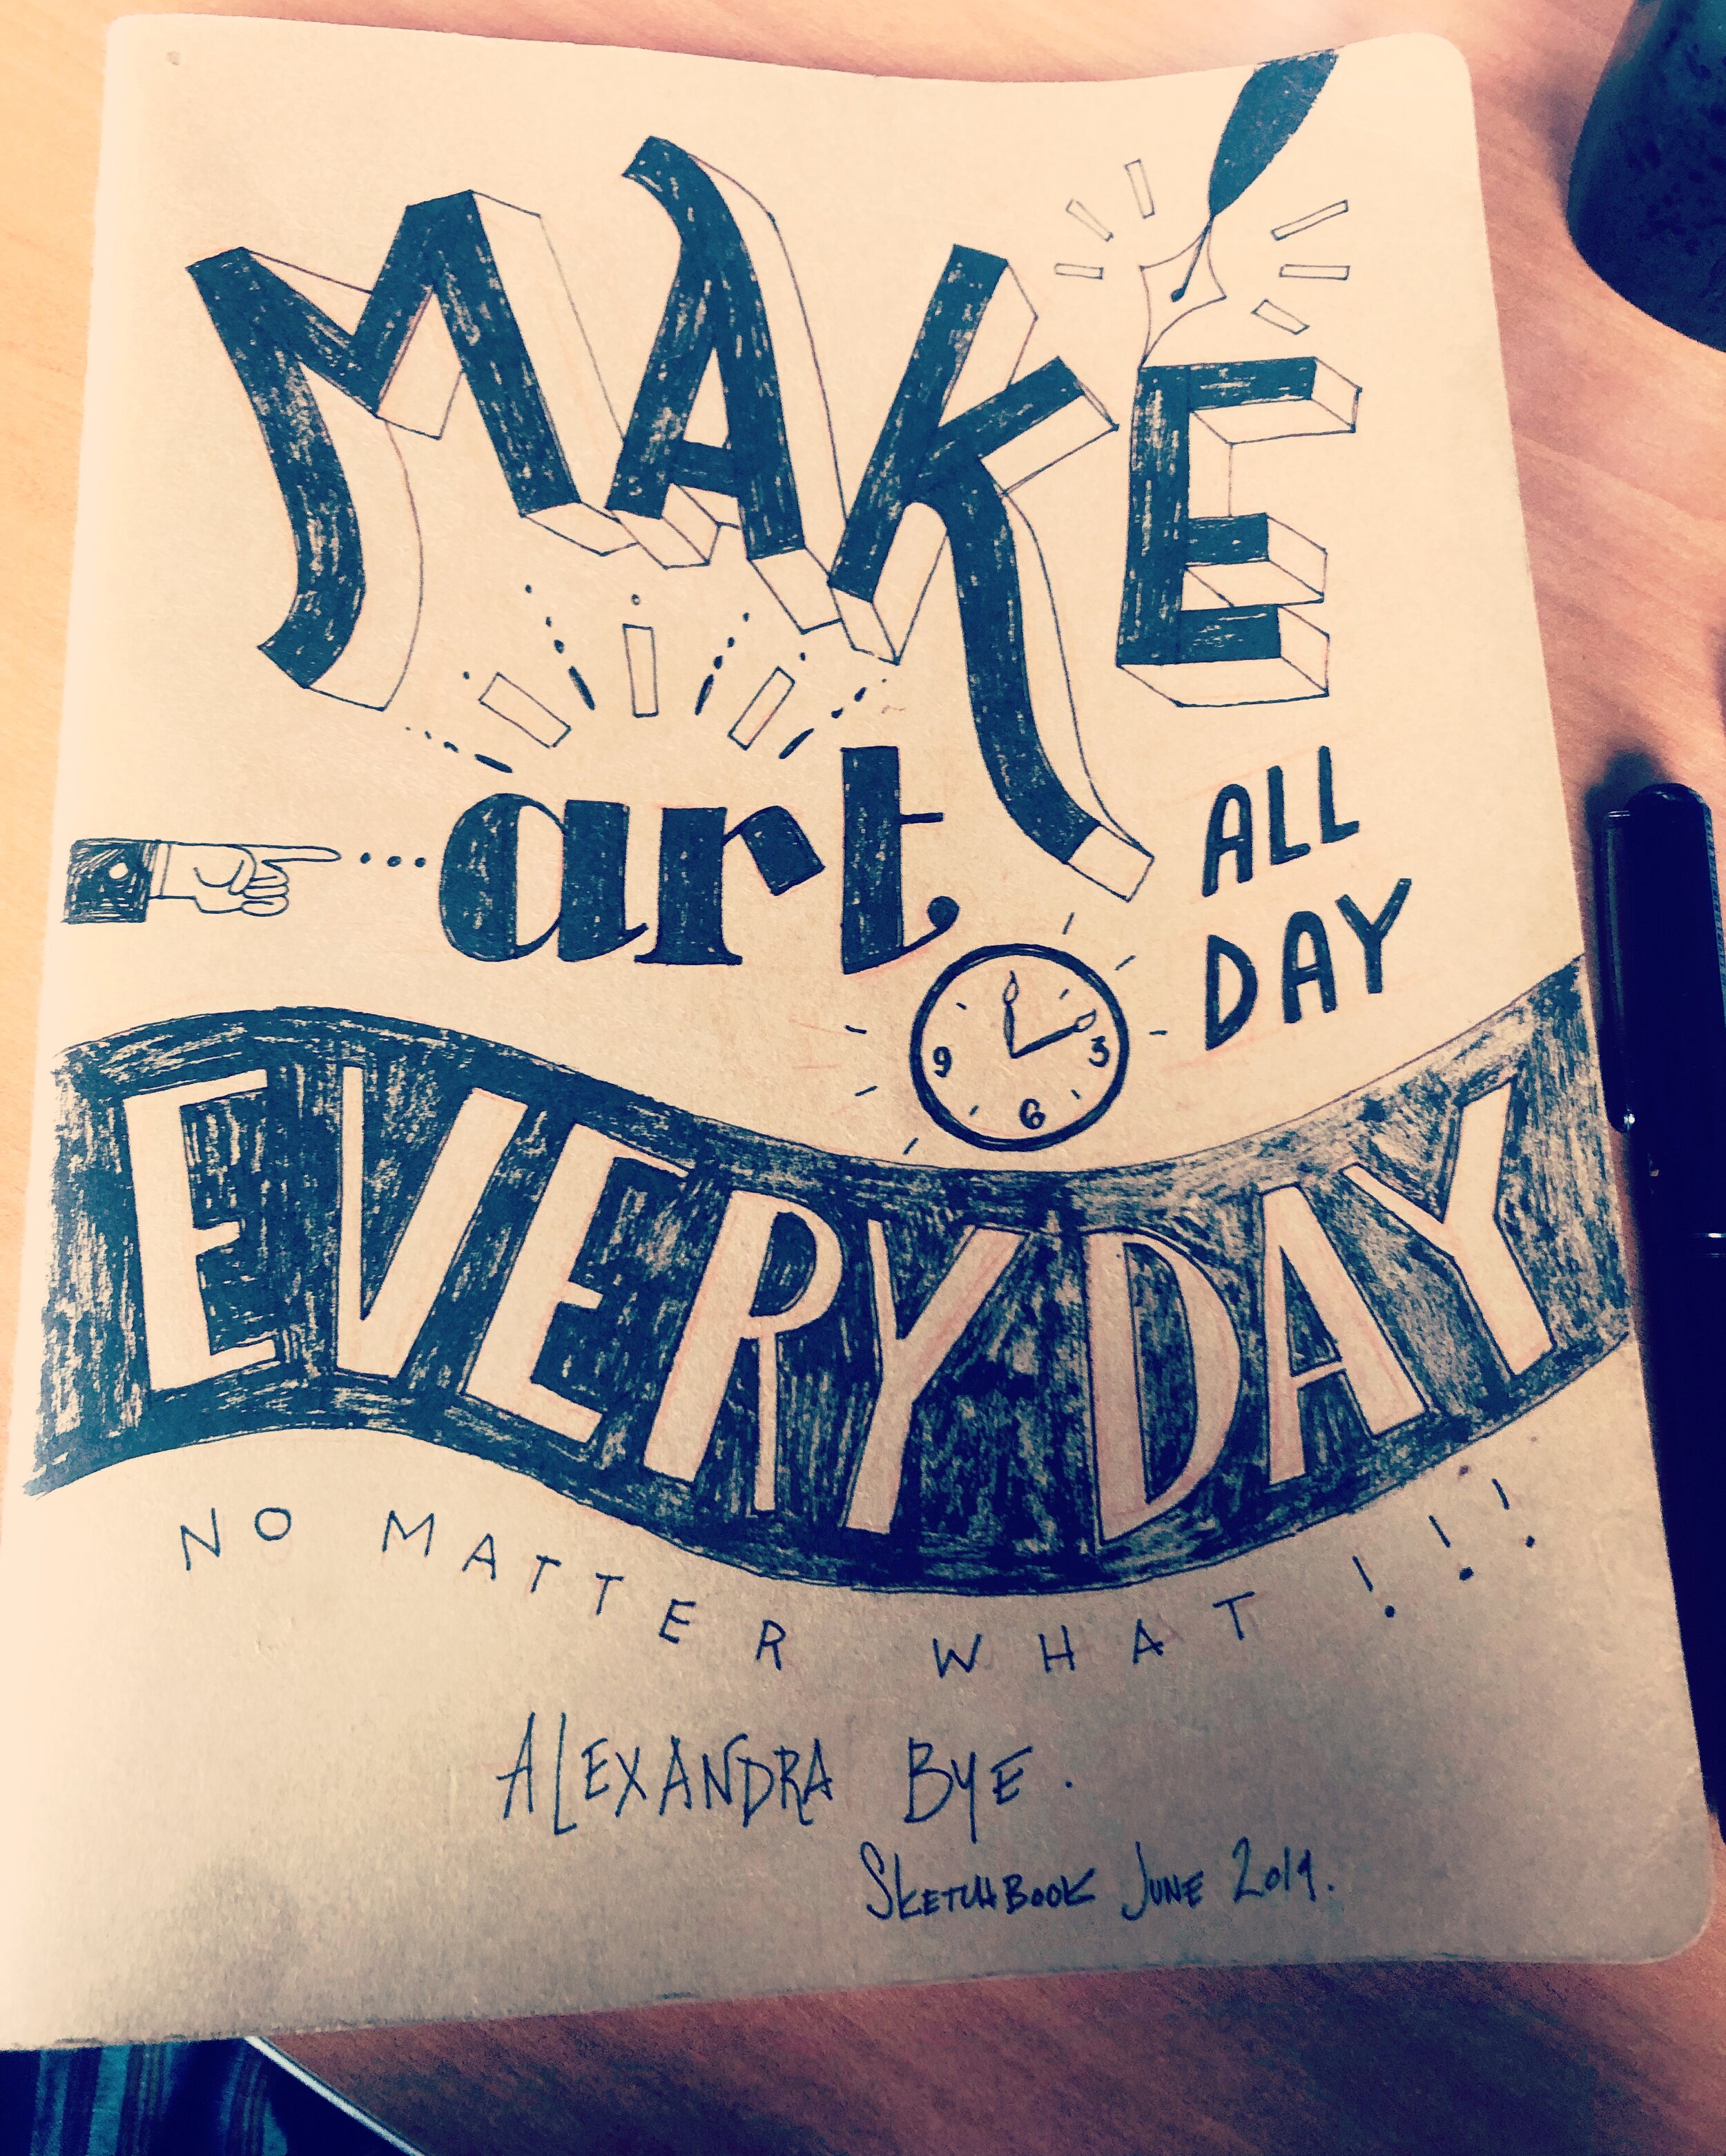 MAKE
art
ALL
DAY
9 3
6
EVERYDAY
NO MATTER WHAT!!!
ALEXANDRA BYE.
SKETCHBOOK JUNE 2019.